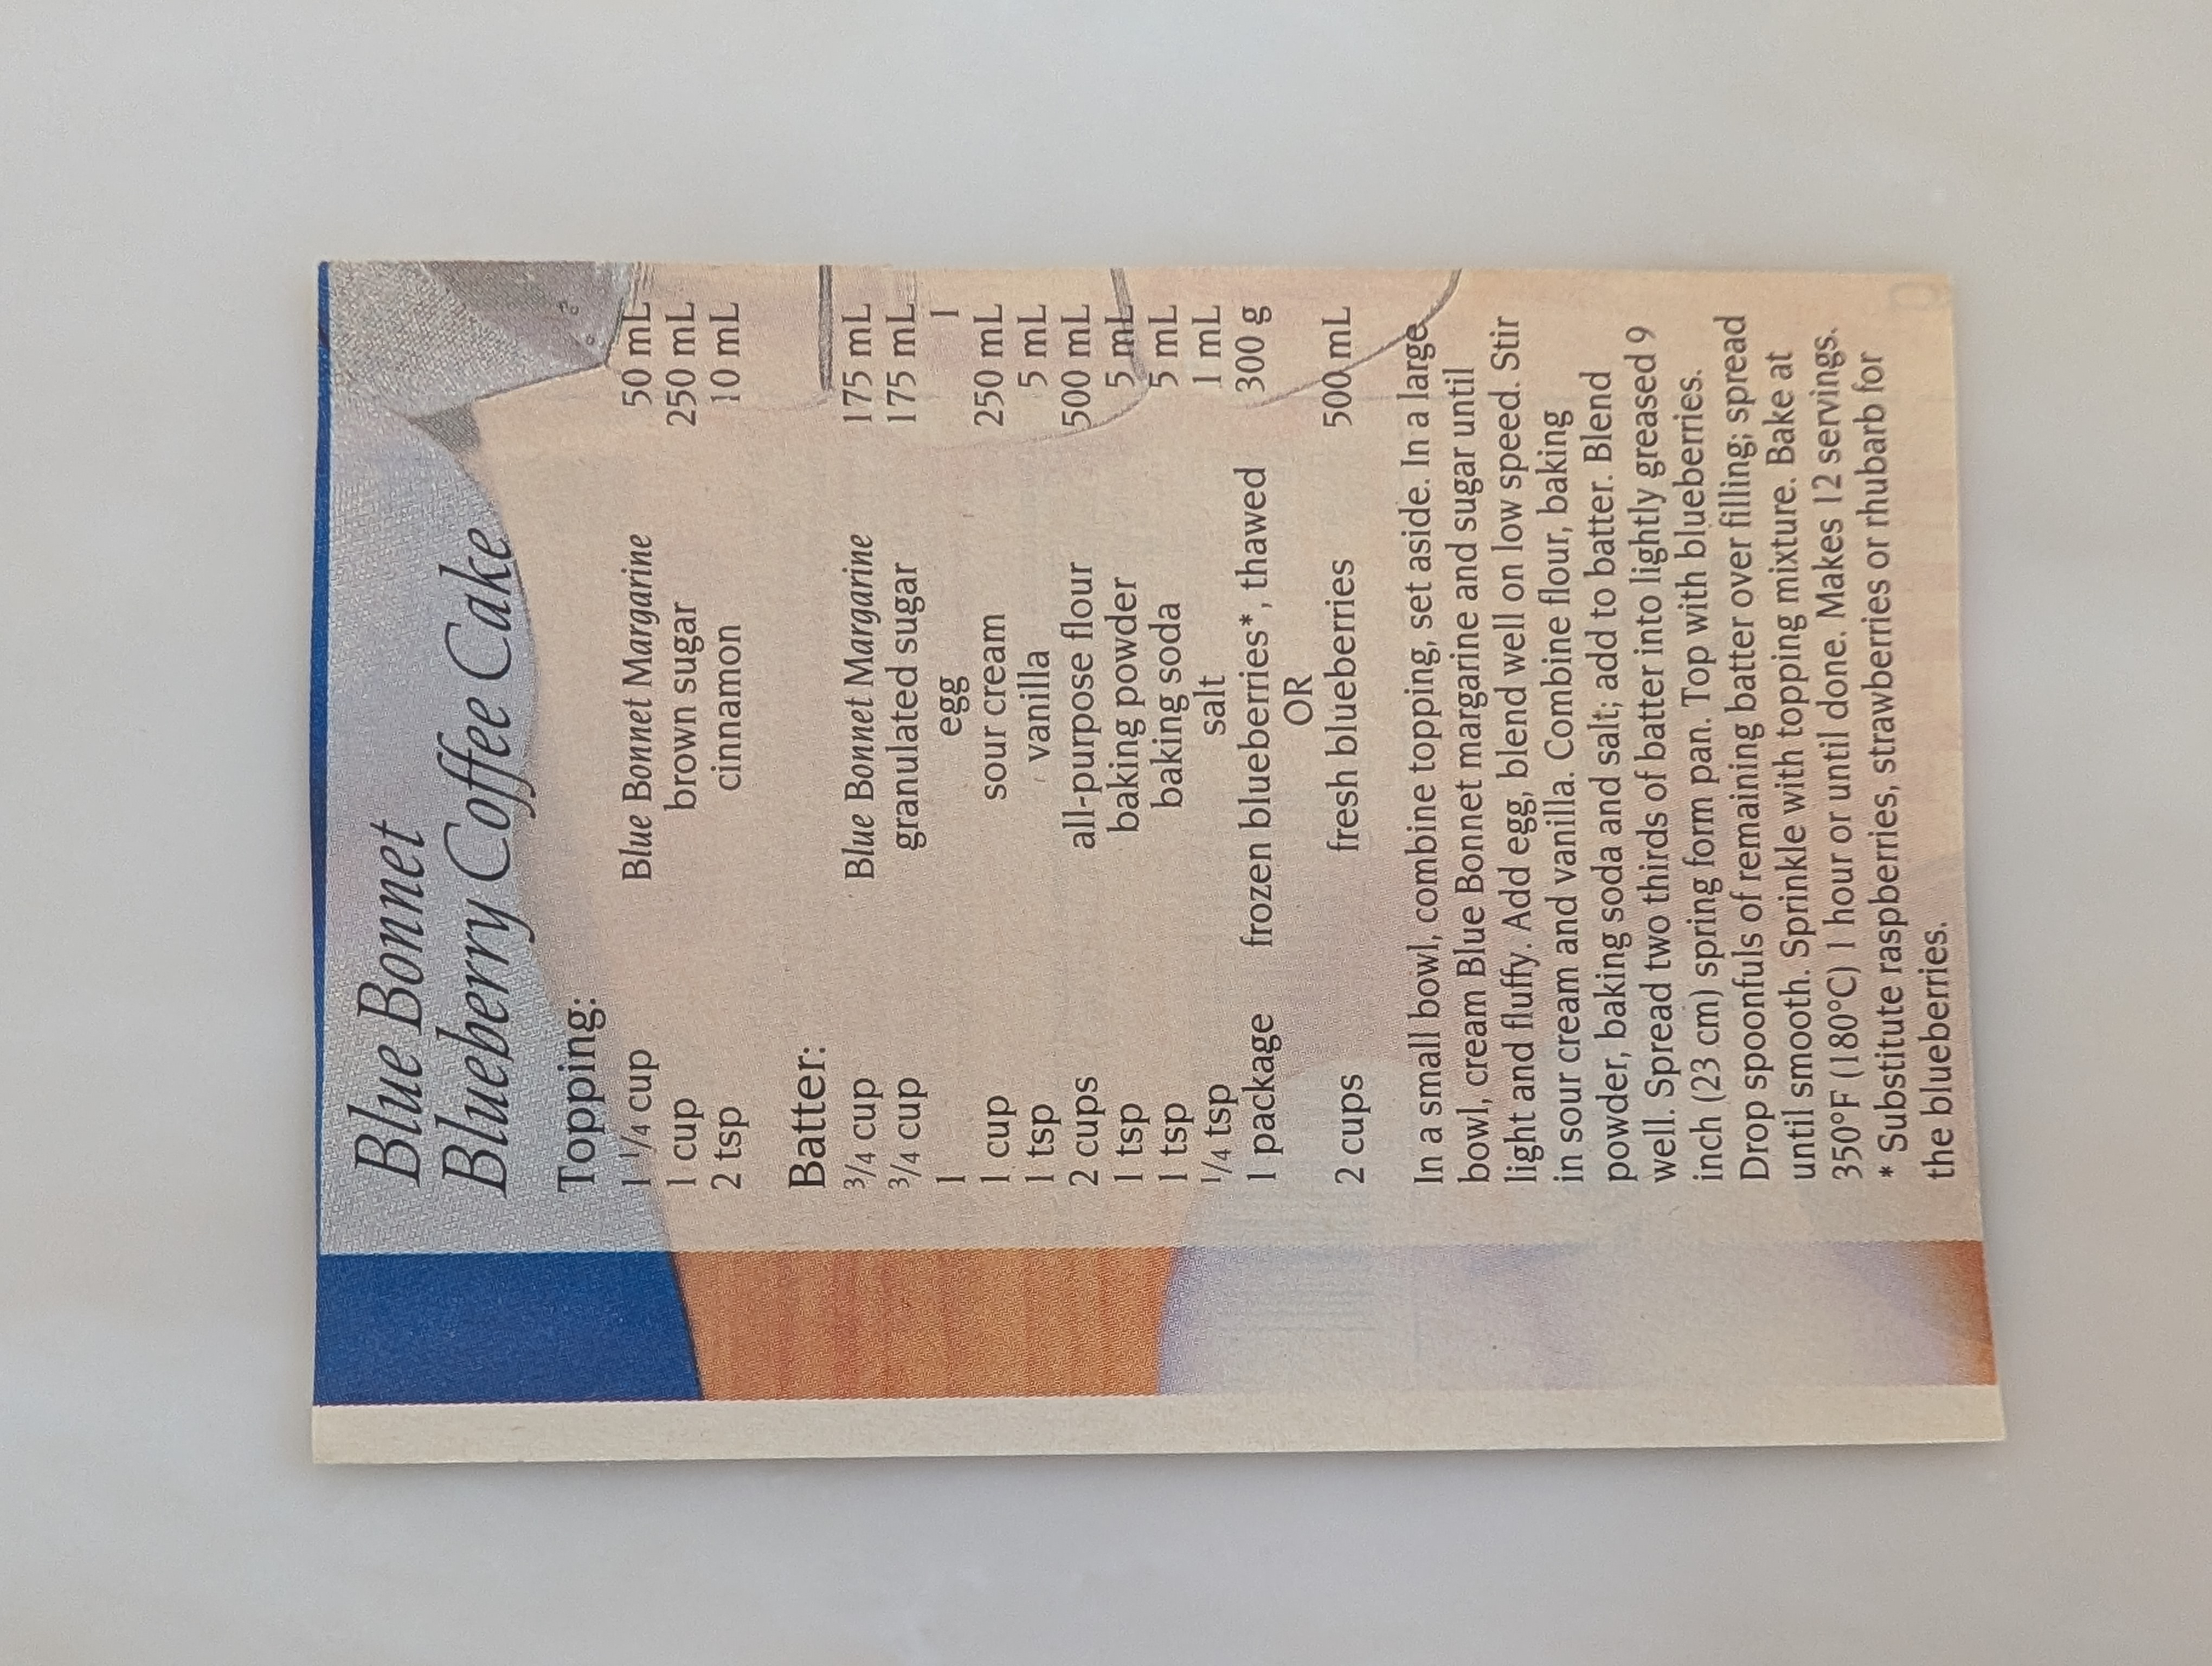 Blue Bonnet
Blueberry Coffee Cake
Topping:
1 1/4 cup Blue Bonnet Margarine 50 mL
1 cup brown sugar 250 mL
2 tsp cinnamon 10 mL
Batter:
3/4 cup Blue Bonnet Margarine 175 mL
3/4 cup granulated sugar 175 mL
1 egg 1
1 cup sour cream 250 mL
1 tsp vanilla 5 mL
2 cups all-purpose flour 500 mL
1 tsp baking powder 5 mL
1 tsp baking soda 5 mL
1/4 tsp salt 1 mL
1 package frozen blueberries*, thawed 300 g
OR
2 cups fresh blueberries 500 mL
In a small bowl, combine topping, set aside. In a large
bowl, cream Blue Bonnet margarine and sugar until
light and fluffy. Add egg, blend well on low speed. Stir
in sour cream and vanilla. Combine flour, baking
powder, baking soda and salt; add to batter. Blend
well. Spread two thirds of batter into lightly greased 9
inch (23 cm) spring form pan. Top with blueberries.
Drop spoonfuls of remaining batter over filling; spread
until smooth. Sprinkle with topping mixture. Bake at
350°F (180°C) 1 hour or until done. Makes 12 servings.
* Substitute raspberries, strawberries or rhubarb for
the blueberries.